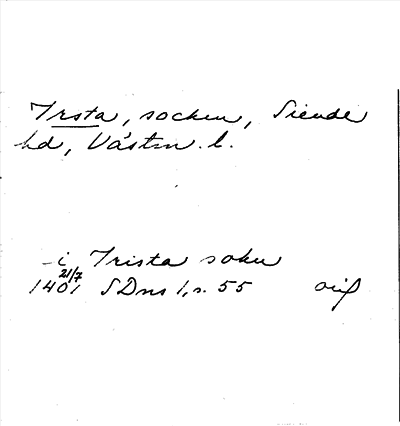 Irsta, socken, Siende
hd, Västm. l.
i Irista sokn
21/7
1401 SDns 1, s. 55 orig